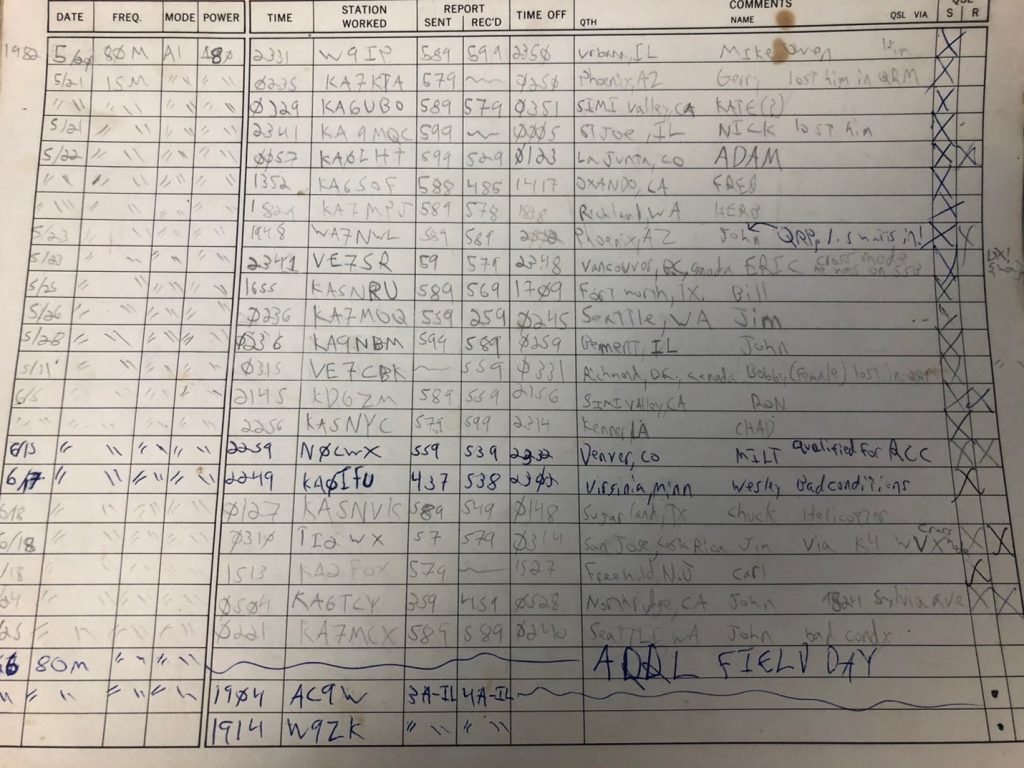 DATE FREQ. MODE POWER TIME STATION WORKED REPORT SENT REC'D TIME OFF QTH COMMENTS NAME QSL VIA QSL S R
1982 5/20 80M A1 180 2331 W9IP 589 599 2350 Urbana, IL Mike Owen
5/21 15M " " " " 0235 KA7KPA 579 ~ 0250 Phoenix, AZ Gerry lost him in QRM
" " " " " " " " 0329 KA6UBO 589 579 0351 SIMI Valley, CA KATE(?)
5/21 " " " " " " 2341 KA9MQC 599 ~ 0005 St Joe, IL NICK lost him
5/22 " " " " " " 0057 KA0LHT 599 529 0123 La Junta, CO ADAM
" " " " " " " " 1352 KA6SOF 588 485 1417 CA FRED
" " " " " " " " 182 KA7MPJ 589 578 1838 Richland, WA HERB
5/23 " " " " " " 1948 WA7NWL 589 589 Phoenix, AZ John QRP,
5/23 " " " " " " 2341 VE7SR 59 579 2348 Vancouver, BC, Canada ERIC cross mode on SSB DX!
5/25 " " " " " " 1655 KA5NRU 589 569 1709 Fort Worth, TX. Bill
5/26 " " " " " " 0236 KA7MOQ 559 259 0245 Seattle, WA Jim
5/28 " " " " " " 0236 KA9NBM 599 589 0259 Bement, IL John
5/31 " " " " " " 0315 VE7CBK ~ 559 0331 Richmond, BC, Canada Bobbi, (female) lost in
6/5 " " " " " " 2145 KD6ZM 589 559 2156 SIMI Valley, CA RON
" " " " " " " " 2256 KA5NYC 579 599 2314 Kenner, LA CHAD
6/15 " " " " " " 2259 N0CWX 559 539 2332 Denver, CO MILT qualified for RCC
6/17 " " " " " " 2249 KA0IFU 437 538 2302 Virginia, Minn Wesley bad conditions
6/18 " " " " " " 0127 KA5NVK 589 549 0148 Sugar land, TX Chuck Helicopter
6/18 " " " " " " 0310 TI2WX 57 579 0314 San Jose, Costa Rica Jim Via K4 Cross
/18 " " " " " " 1513 KA2FOX 579 ~ 1527 Freehold, N.J Carl
24 " " " " " " 0504 KA6TCY 359 459 0528 Northridge, CA John Sylvia ave
25 " " " " " " 0221 KA7MCX 589 589 0240 Seattle WA John bad condx
6 80M " " " " ARRL FIELD DAY
" " " " " " " 1904 AC9W 3A-IL 4A-IL
1914 W9ZK " " " "